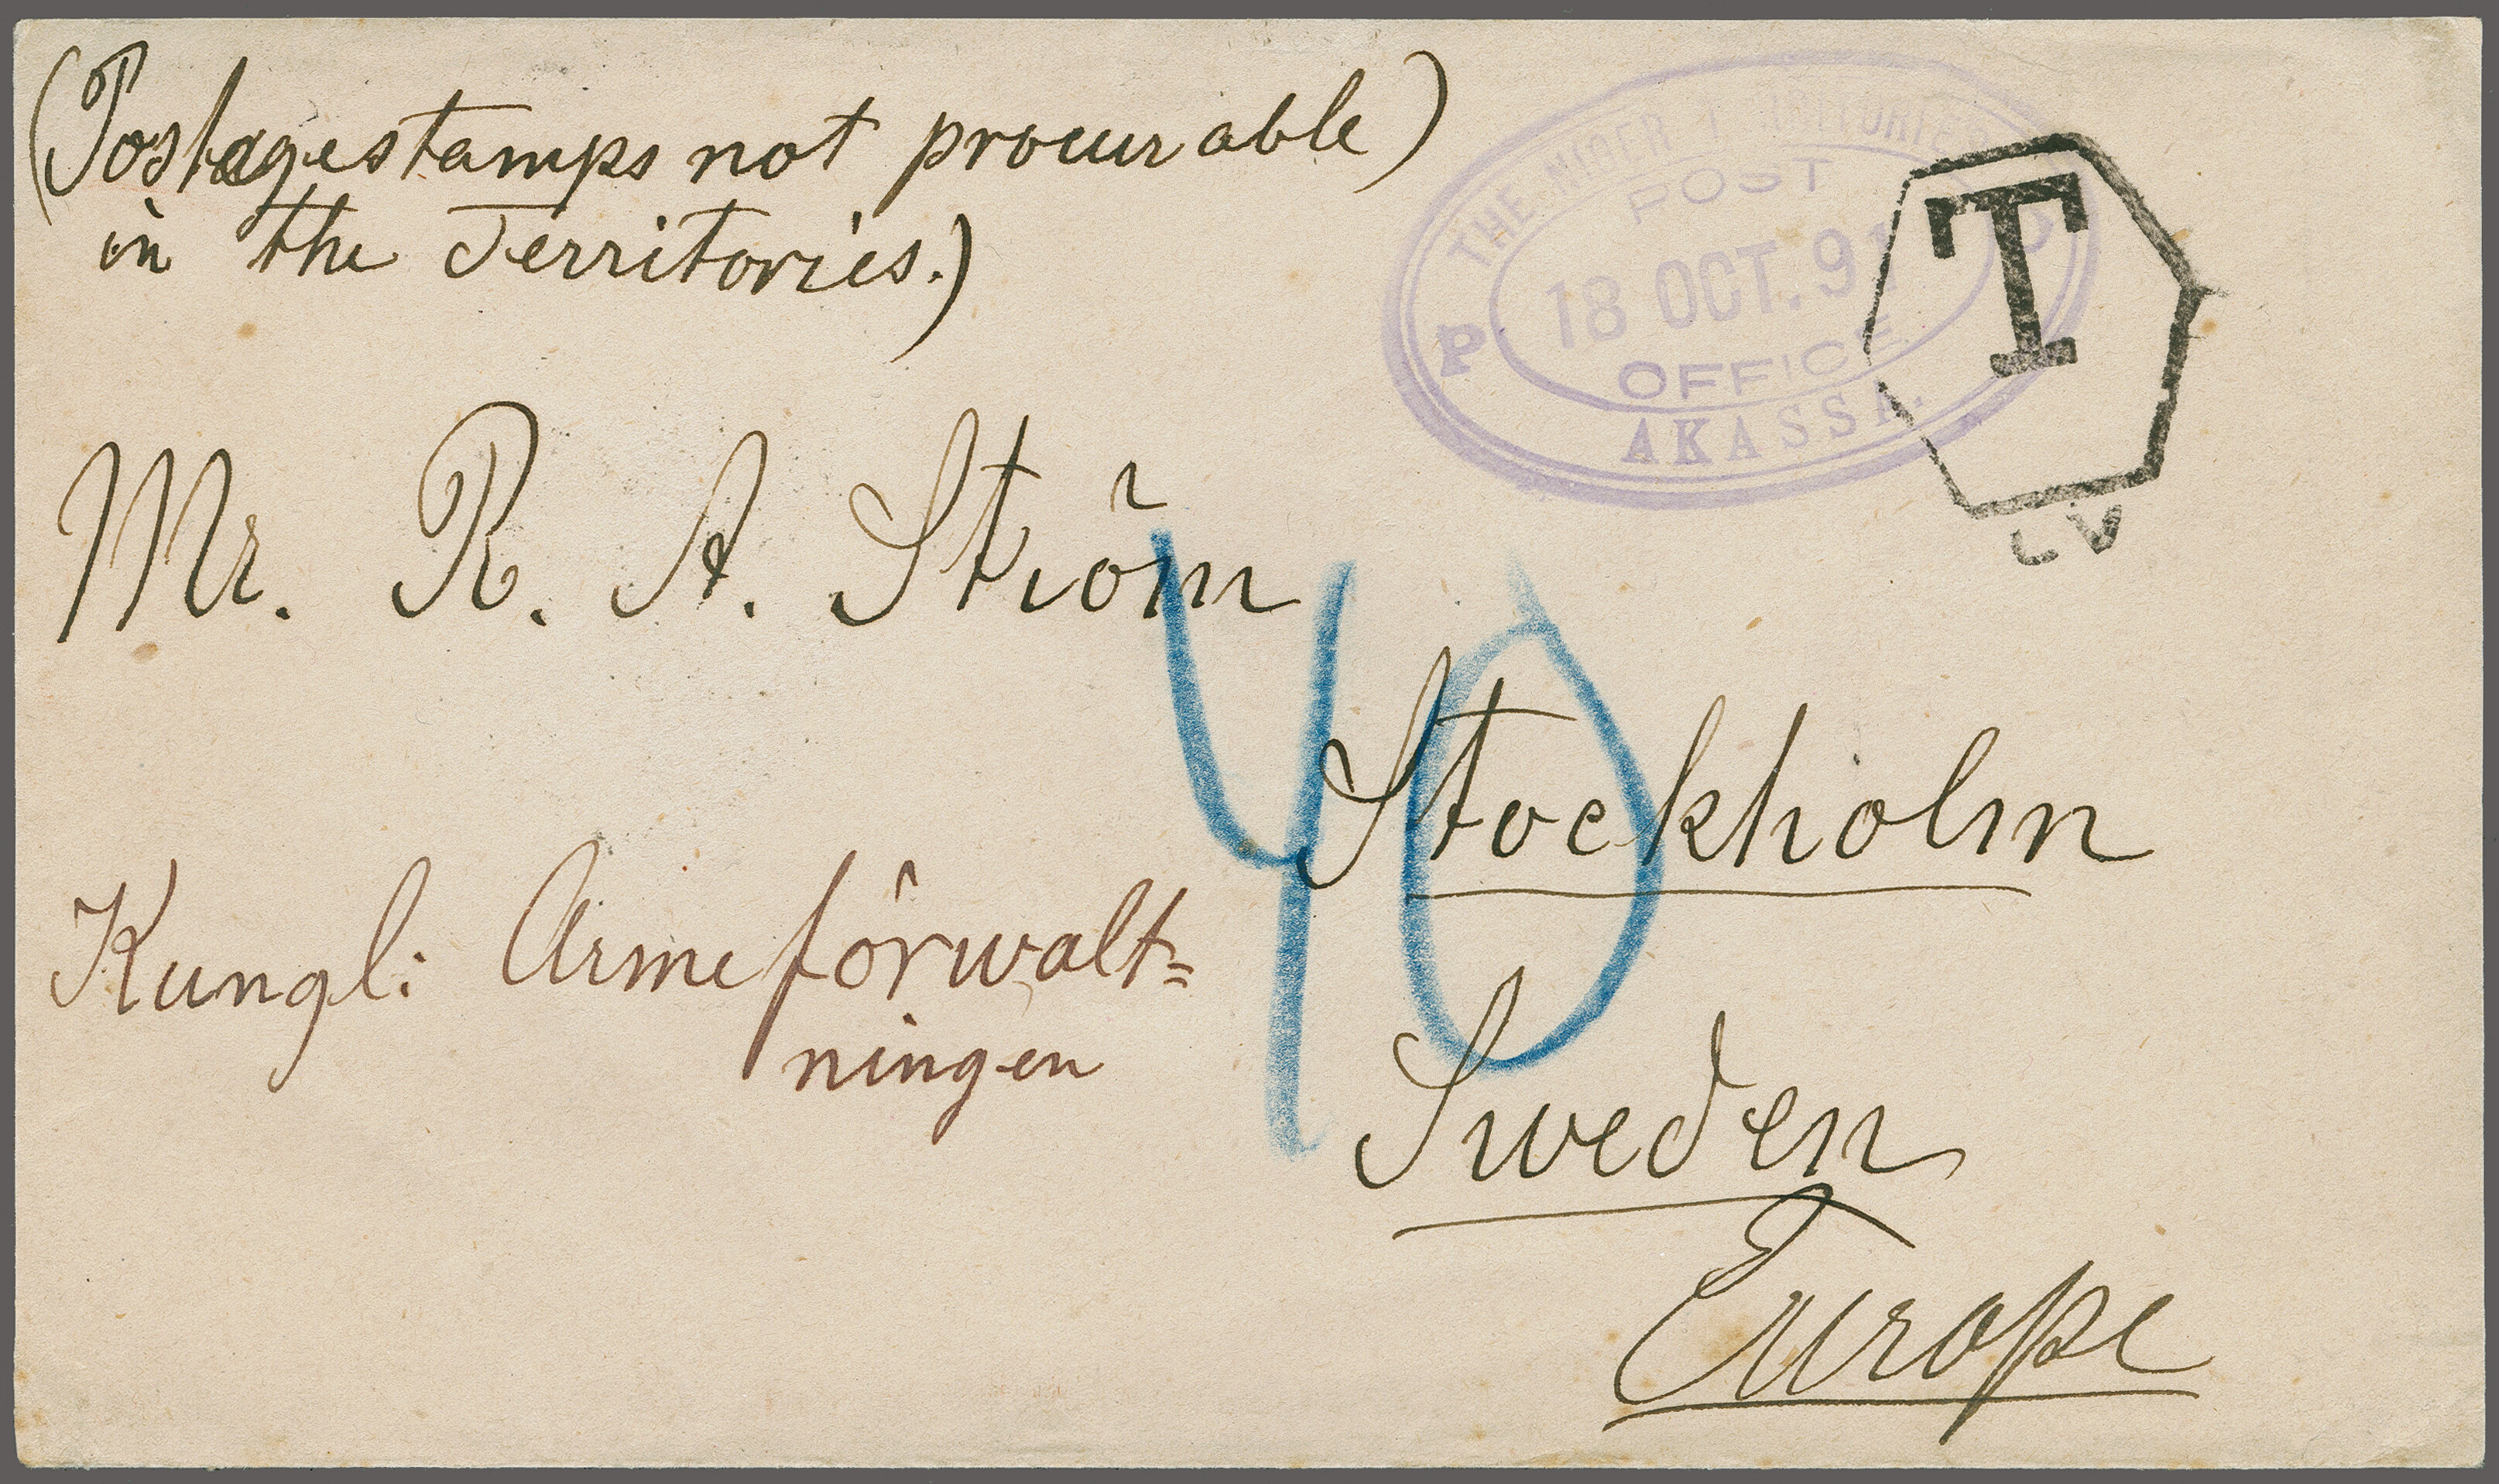 (Postagestamps not procurable)
in the Territories.)
THE NIGER TERRITORIES
POST
18 OCT. 91
OFFICE
P
AKASSA.
T
LV
Mr. R. A. Ström
40
Stockholm
Kungl: Armeförwalt=
ningen
Sweden
Europe